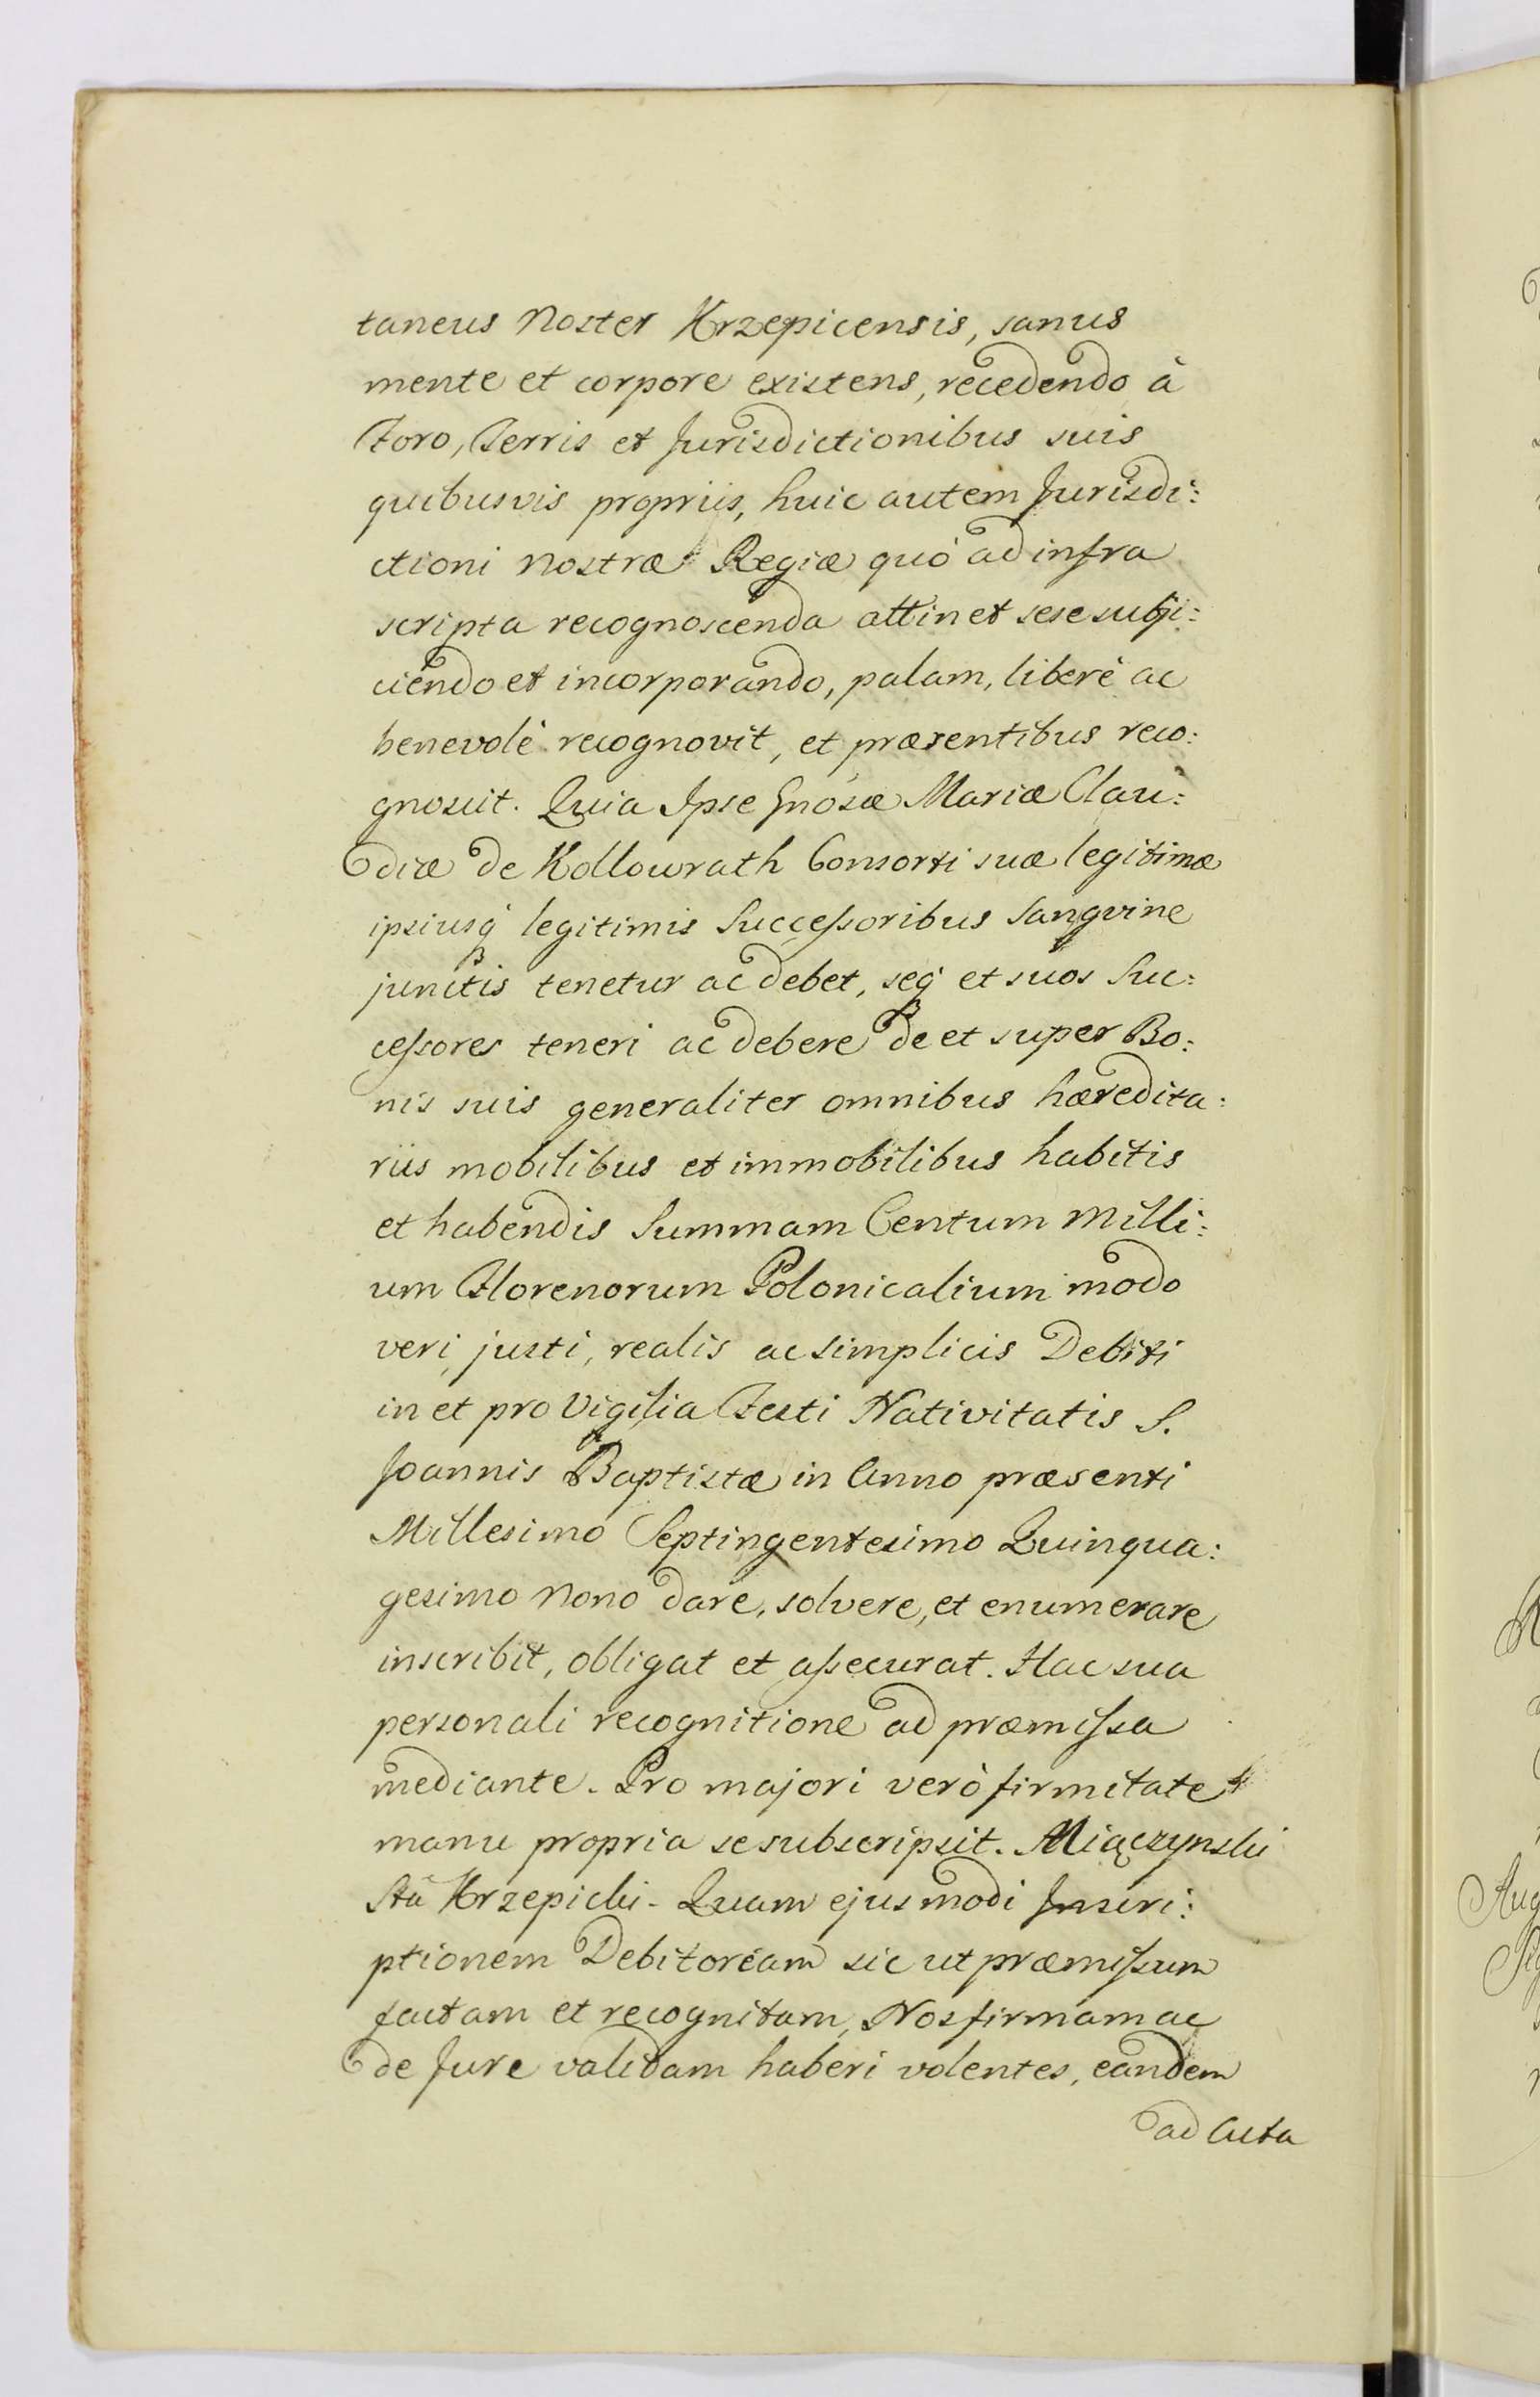 taneus Noster Krzepicensis, sanus
mente et corpore existens, recedendo à
Foro, Terris et Jurisdictionibus suis
quibusvis propriis, huic autem Jurisdi:
ctioni Nostræ Regiæ quò ad infra
scripta recognoscenda attinet sese subji:
ciendo et incorporando, palam, liberè ac
benevolè recognovit, et præsentibus reco:
gnoscit. Quia Ipse Gnosæ Mariæ Clau:
diæ de Kollowrath Consorti suæ legitimæ
ipsiusq́ legitimis Successoribus Sangvine
junctis tenetur ac debet, seq́ et suos Suc:
cessores teneri ac debere de et super Bo:
nis suis generaliter omnibus hæredita:
riis mobilibus et immobilibus habitis
et habendis Summam Centum Milli:
um Florenorum Polonicalium modo
veri, justi, realis ac simplicis Debiti
in et pro Vigilia Festi Nativitatis S.
Joannis Baptistæ in Anno præsenti
Millesimo Septingentesimo Quinqua:
gesimo Nono dare, solvere, et enumerare
inscribit, obligat et assecurat. Hac sua
personali recognitione ad præmissa
mediante. Pro majori verò firmitate
manu propria se subscripsit. Miączynski
Sta Krzepicki. Quam ejusmodi Inscri:
ptionem Debitoream sic ut præmissum
factam et recognitam, Nos firmam ac
de Jure validam haberi volentes, eandem
ad Acta
Aug